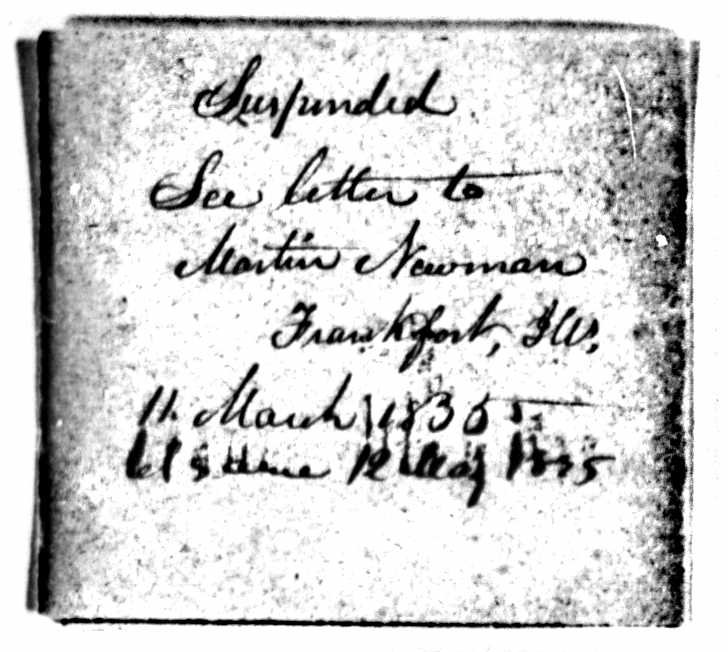 Suspended
See letter to
Martin Newman
Frankfort, Ill,
11. March 1835
same 12 May 1835